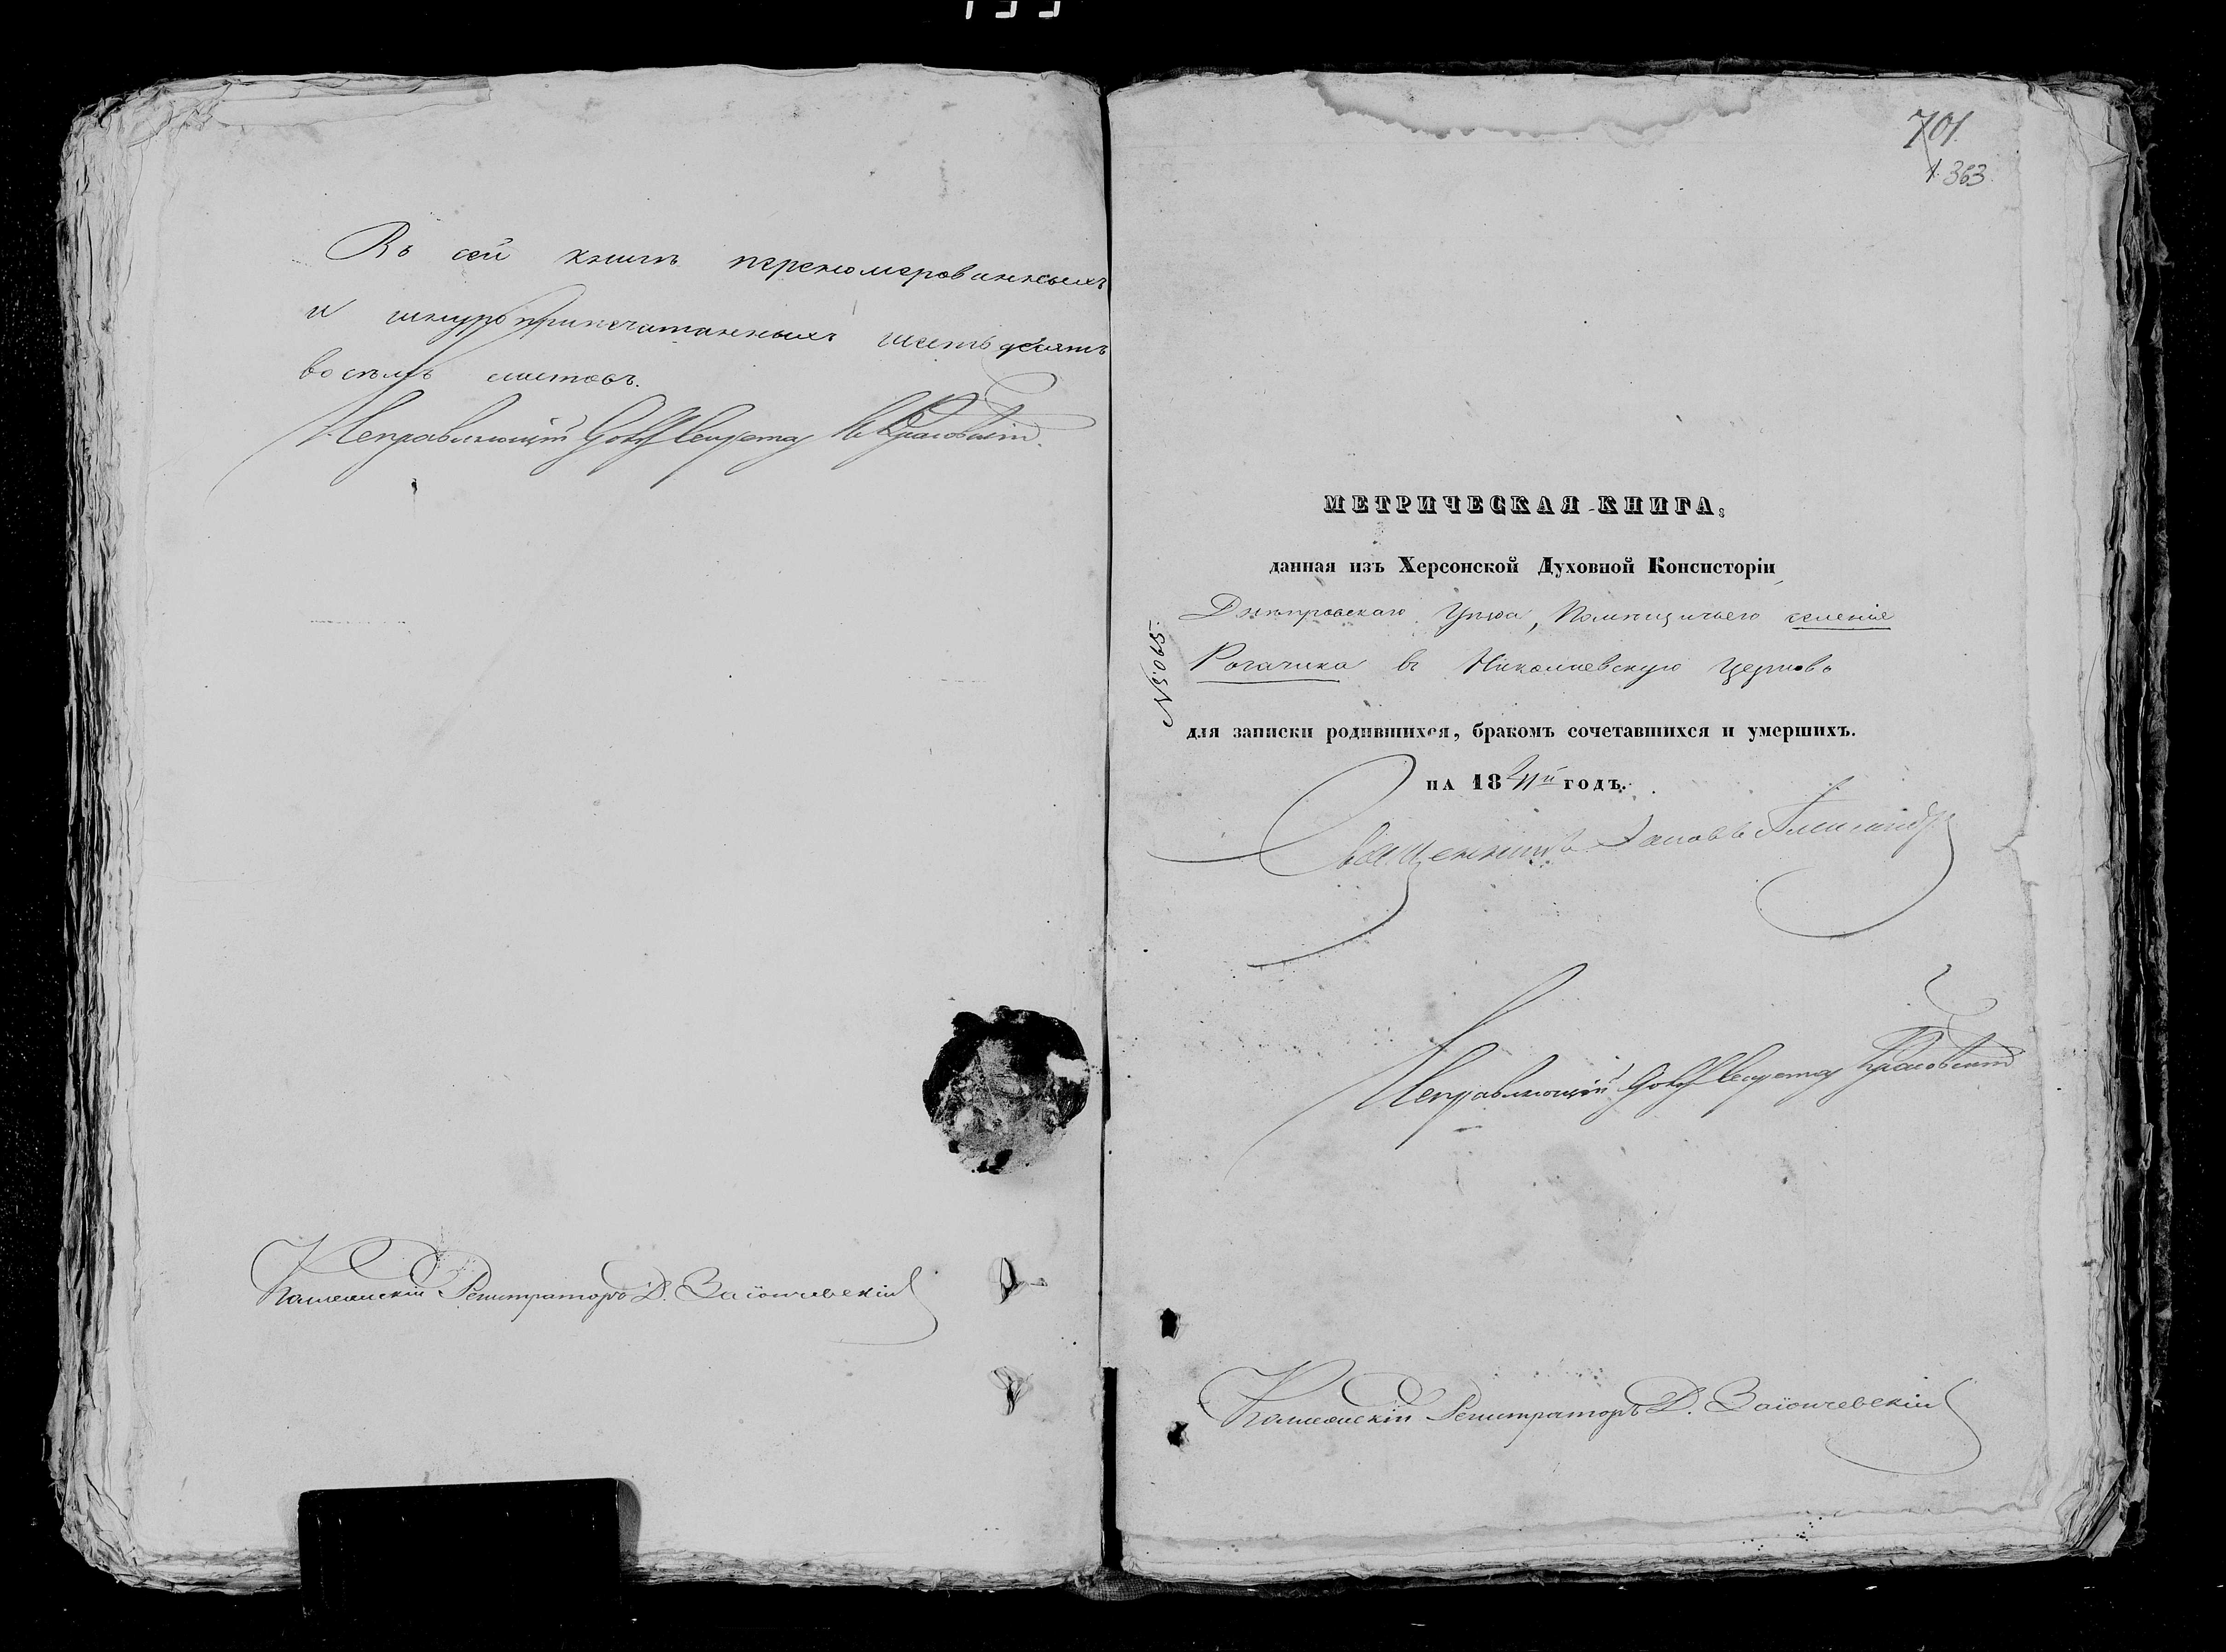 Въ сей книгѣ перенумерованныхъ
и шнуроприпечатанныхъ шестьдесятъ
восѣмь листовъ.
Исправляющій Секретаря Красовскій.
Коллежскій Регистраторъ Д. Заіончевскій
701.
363.
МЕТРИЧЕСКАЯ КНИГА,
данная изъ Херсонской Духовной Консисторіи
Днѣпровскаго Уѣзда, Помѣщичьего селенія
Рогачика въ Николаевскую Церковь
№ 5,065.
для записки родившихся, бракомъ сочетавшихся и умершихъ.
НА 1841й ГОДЪ.
Священникъ Іаковъ Александр
Исправляющій Секретаря Красовскій
Коллежскій Регистраторъ Д. Заіончевскій